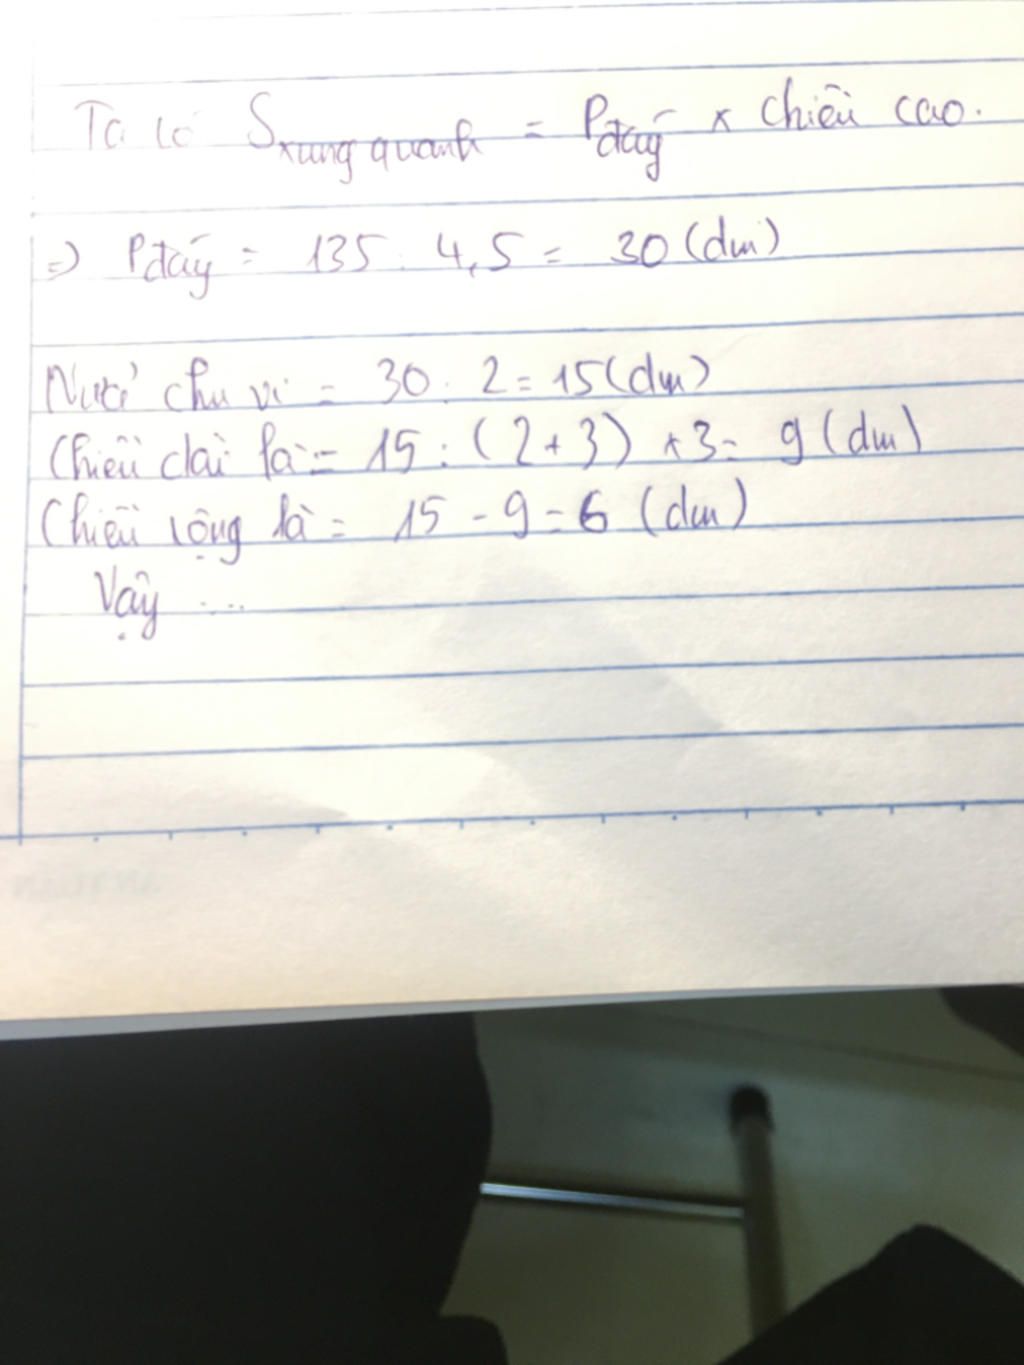 Ta có Sxung quanh = Pđáy × chiều cao.
=> Pđáy = 135 : 4,5 = 30 (dm)
Nửa chu vi = 30 : 2 = 15 (dm)
Chiều dài là = 15 : (2+3) × 3 = 9 (dm)
Chiều rộng là = 15 - 9 = 6 (dm)
Vậy ...